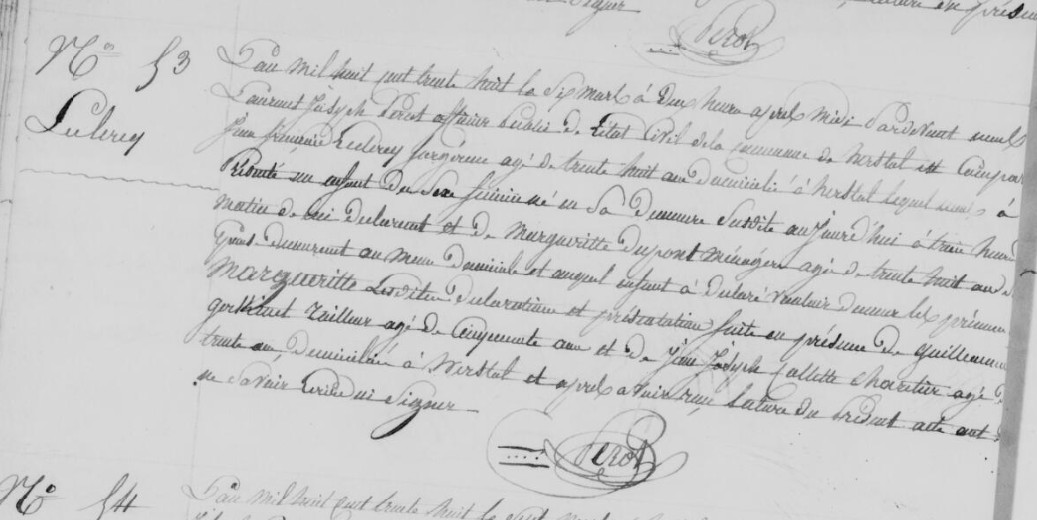 Perot
N° 53
Leclercq
L'an mil huit cent trente huit le six mars à deux heures aprel midi Pardevant nous
Laurent Joseph Perot officier public de L'Etat Civil de la commune de herstal est Comparu
Jean francois Leclercq forgeron agé de trente huit ans domicilié à herstal lequel nous à
Présenté un enfant du Sexe féminin né en Sa demeure Susdite aujourd'hui à trois heures
matin de lui déclarant et de Margueritte dupont ménagère agée de trente huit ans
demeurant au meme domicile et auquel enfant à déclaré vouloir donner les prénoms
Margueritte Lesdites declarations et présentation faite en présence de guillaume
tailleur agé de Cinquante ans et de Jean Joseph Collette charetier agé de
trente ans domiciliés à herstal et aprel avoir reçu lecture du présent acte ont
ne Savoir Ecrire ni Signer
Perot
N° 54
L'an mil huit cent trente huit le